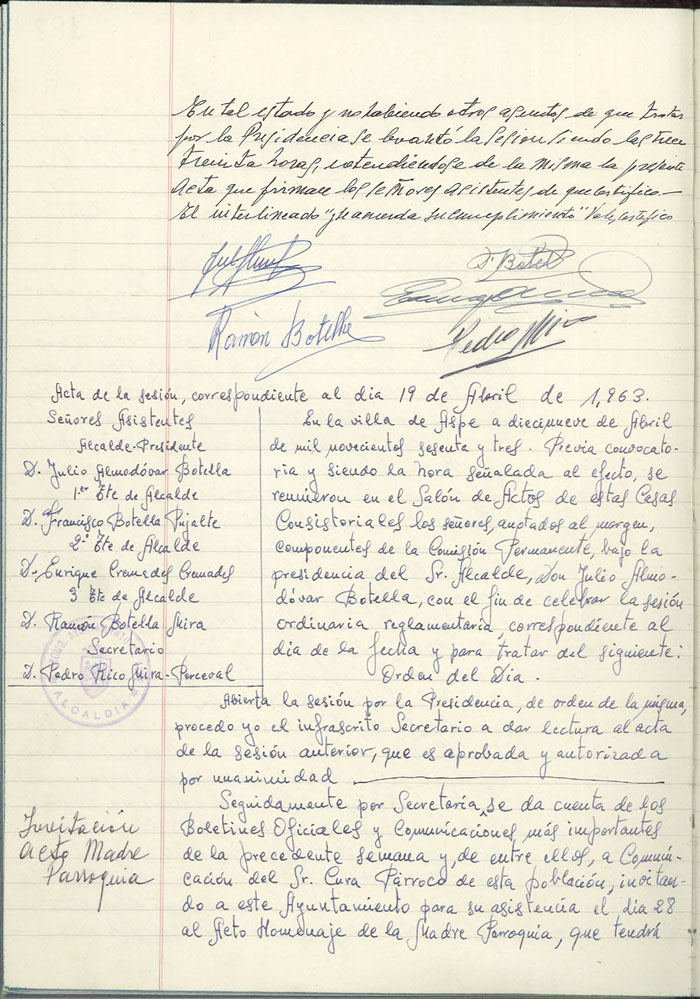 En tal estado y no habiendo otros asuntos de que tratar
por la Presidencia se levantó la sesion siendo las trece
treinta horas, extendiendose de la misma la presente
Acta que firman los señores asistentes de que certifico.—
El interlineado "y se acuerda su cumplimiento" Vale, certifico
F. Botella
Ramón Botella
Pedro Rico
Acta de la sesión, correspondiente al dia 19 de Abril de 1,963.
Señores Asistentes
Alcalde-Presidente
D. Julio Almodóvar Botella
1.er Tte de Alcalde
D. Francisco Botella Pujalte
2º Tte de Alcalde
D. Enrique Cremades Cremades
3 Tte de Alcalde
D. Ramón Botella Mira
Secretario
D. Pedro Rico Mira-Perceval
ALCALDIA
En la villa de Aspe a diecinueve de Abril
de mil novecientos sesenta y tres. Previa convocato-
ria y siendo la hora señalada al efecto, se
reunieron en el Salón de Actos de estas Casas
Consistoriales los señores, anotados al margen,
componentes de la Comisión Permanente, bajo la
presidencia del Sr. Alcalde, Don Julio Almo-
dóvar Botella, con el fin de celebrar la sesión
ordinaria reglamentaria, correspondiente al
dia de la fecha y para tratar del siguiente:
Orden del Dia.
Abierta la sesión por la Presidencia, de orden de la misma,
procedo yo el infrascrito Secretario a dar lectura al acta
de la sesión anterior, que es aprobada y autorizada
por unanimidad
Invitación
acto Madre
Parroquia
Seguidamente por Secretaría, se da cuenta de los
Boletines Oficiales y Comunicaciones, más importantes
de la precedente semana y, de entre ellos, a Comuni-
cación del Sr. Cura Párroco de esta población, invitan-
do a este Ayuntamiento para su asistencia el dia 28
al Acto Homenaje de la Madre Parroquia, que tendrá